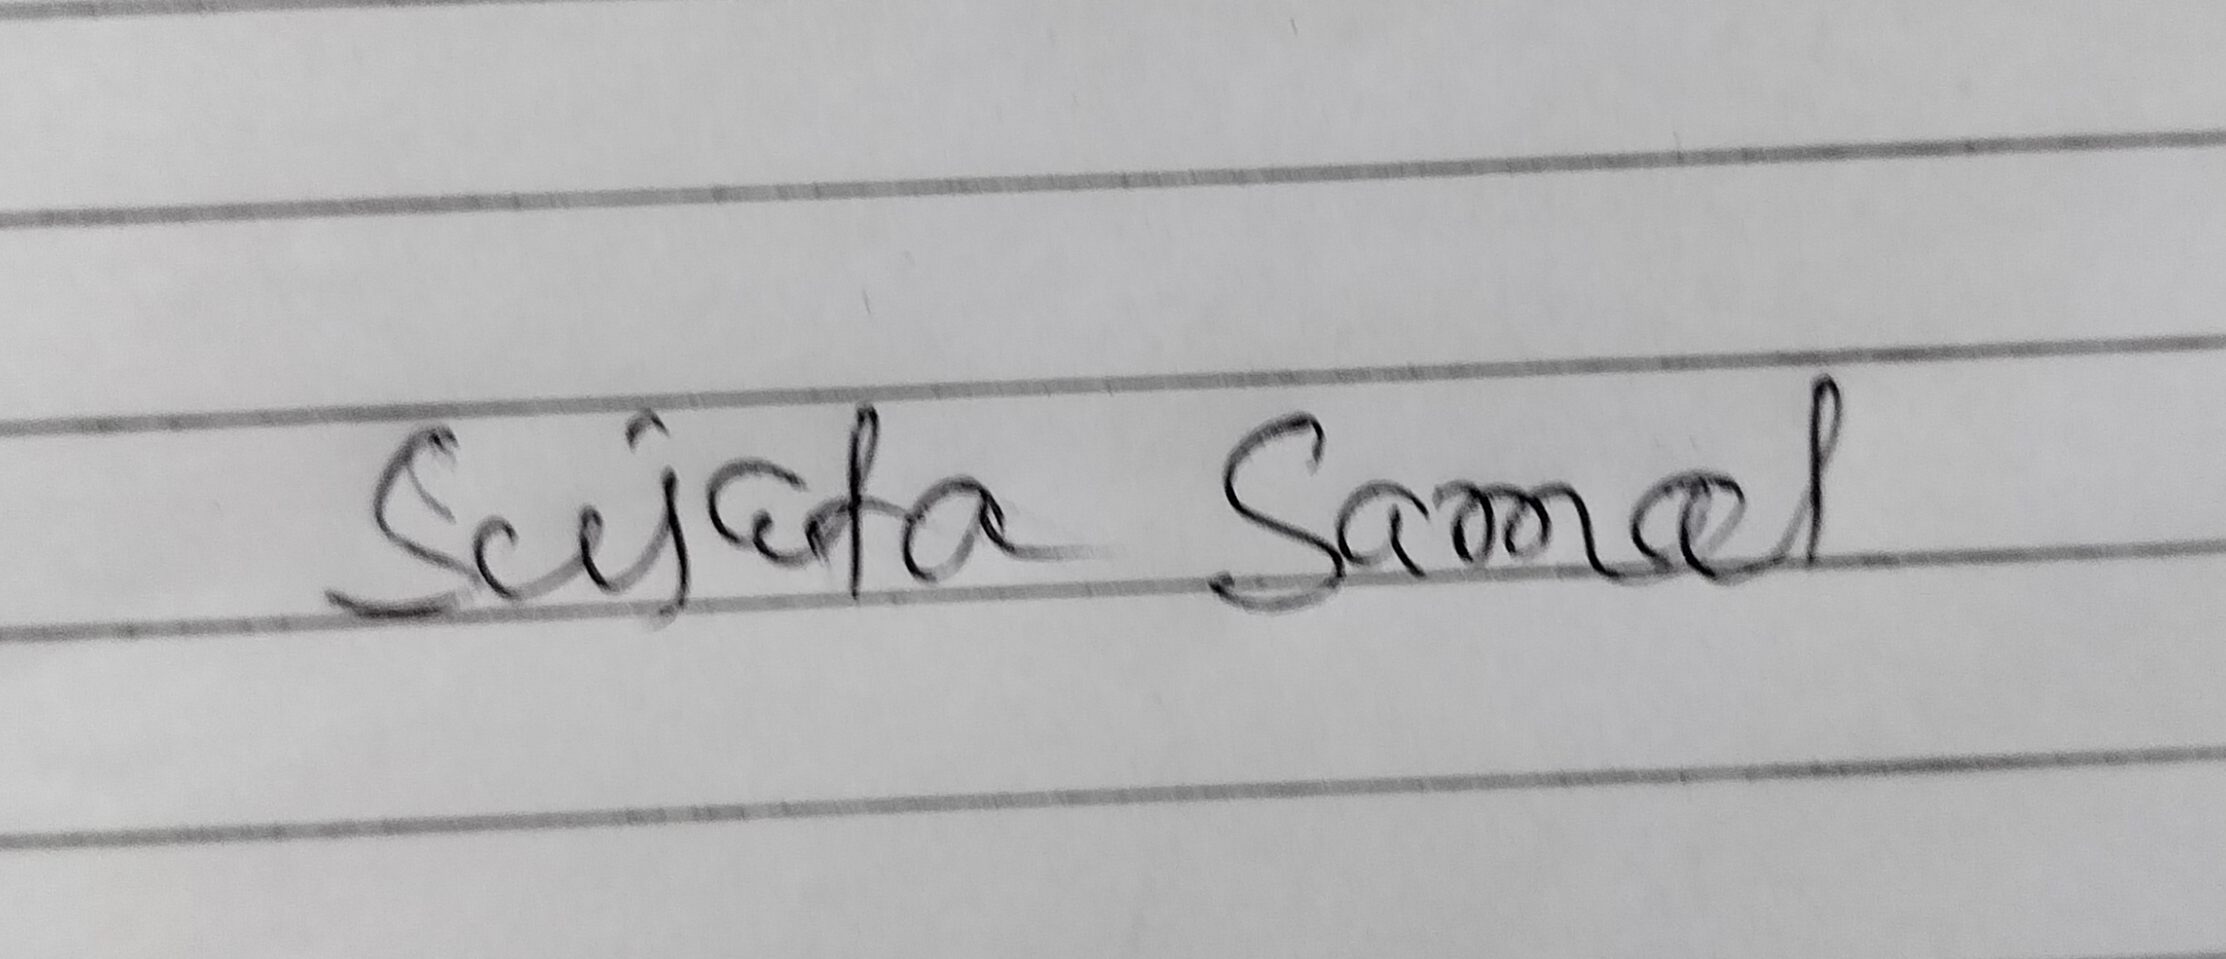 Sujata Samal